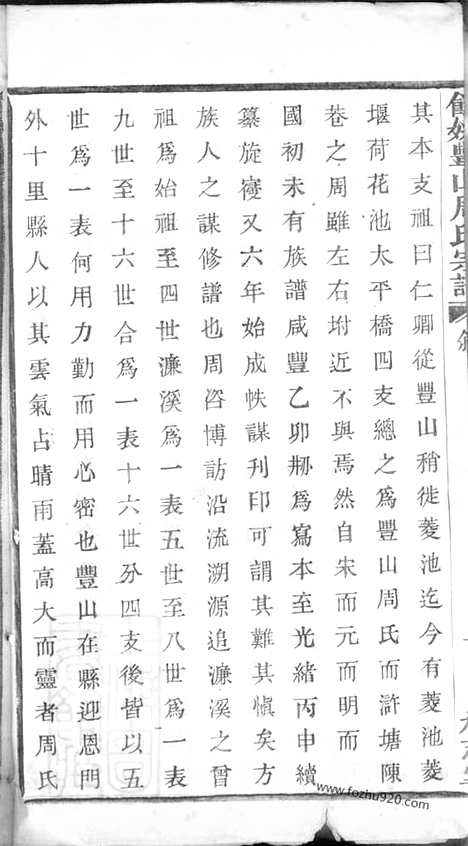 會姚豐山周氏宗譜 敘
其本支祖曰仁卿從豐山稍徙菱池迄今有菱池菱
堰荷花池太平橋四支總之爲豐山周氏而滸塘陳
巷之周雖左右坿近不與焉然自宋而元而明而
國初未有族譜咸豐乙卯刱爲寫本至光緒丙申續
纂旋寢又六年始成帙謀刊印可謂其難其愼矣方
族人之謀修譜也周咨博訪沿流溯源追濂溪之曾
祖爲始祖至四世濂溪爲一表五世至八世爲一表
九世至十六世合爲一表十六世分四支後皆以五
世爲一表何用力勤而用心密也豐山在縣迎恩門
外十里縣人以其雲氣占晴雨蓋高大而靈者周氏
www.fozhu920.com